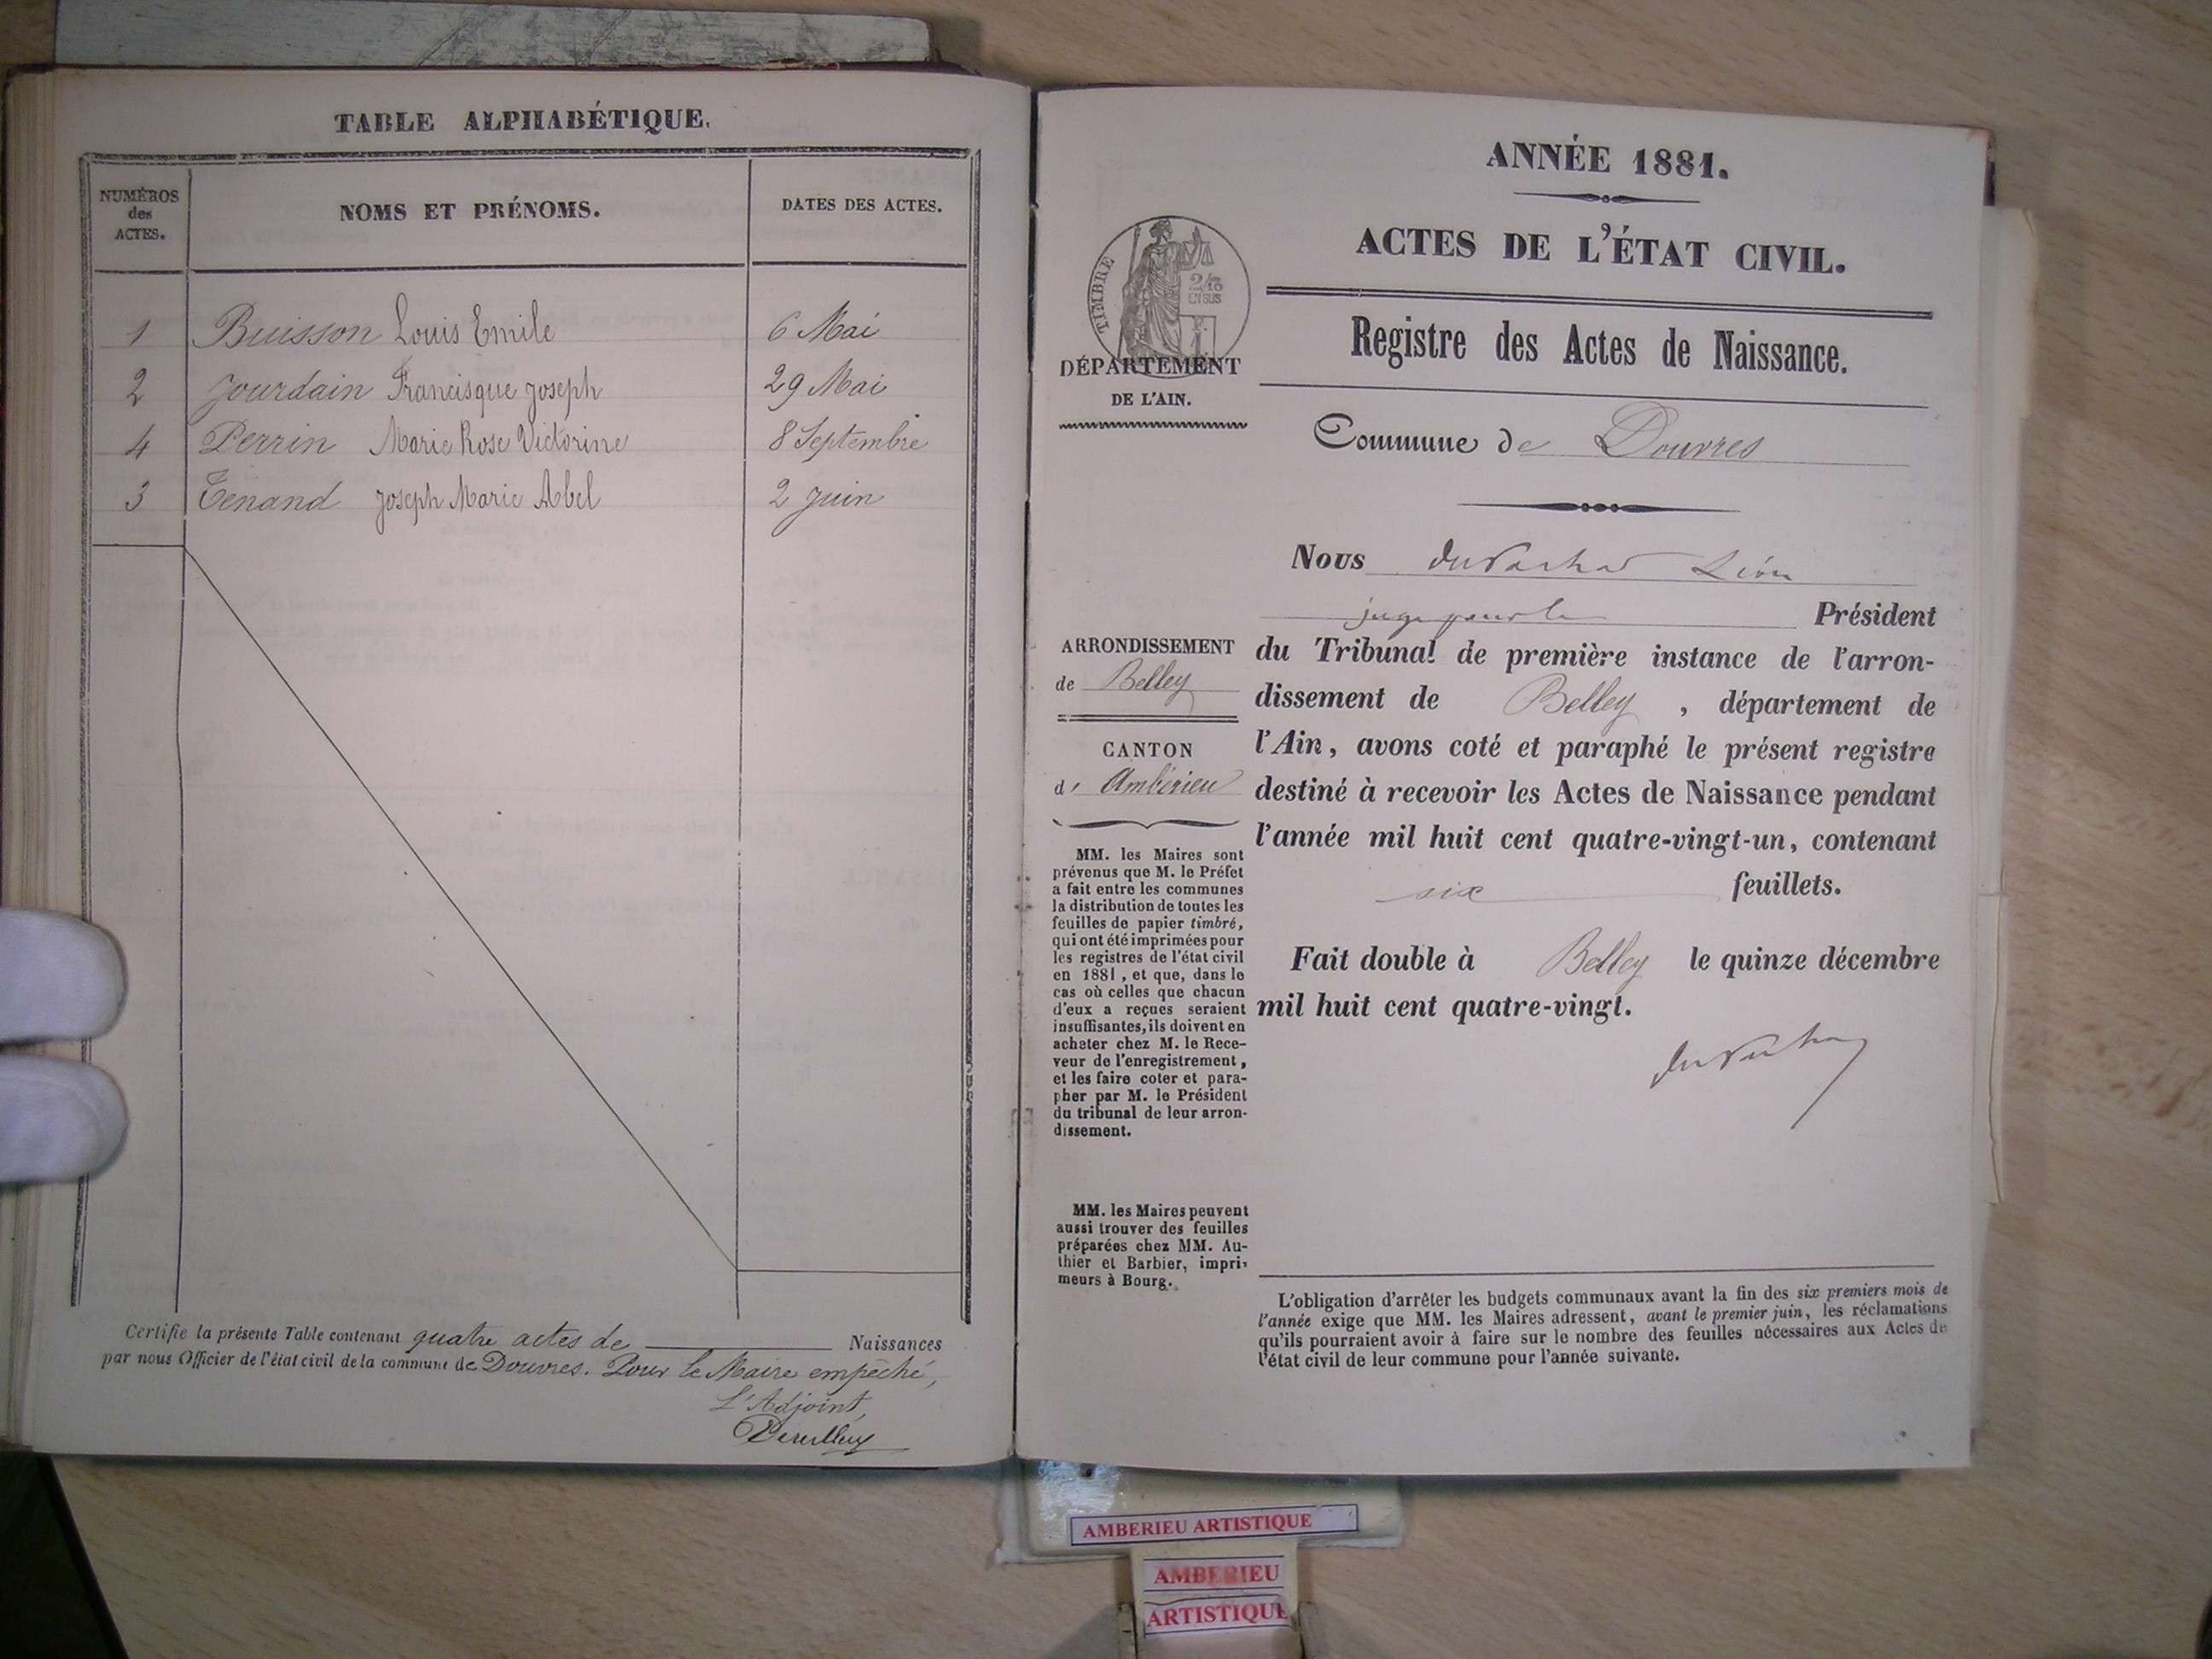 TABLE ALPHABÉTIQUE.
NUMÉROS
des
ACTES.
NOMS ET PRÉNOMS.
DATES DES ACTES.
1 Buisson Louis Emile 6 Mai
2 Jourdain Francisque Joseph 29 Mai
4 Perrin Marie Rose Victorine 8 Septembre
3 Tenand Joseph Marie Abel 2 Juin
Certifie la présente Table contenant quatre actes de Naissances
par nous Officier de l'état civil de la commune de Douvres. Pour le Maire empêché,
L'Adjoint,
ANNÉE 1881.
ACTES DE L'ÉTAT CIVIL.
TIMBRE
2/10
EN SUS
DÉPARTEMENT
DE L'AIN.
Registre des Actes de Naissance.
Commune de Douvres
Nous Léon
juge pour le Président
ARRONDISSEMENT
de Belley
CANTON
d' Ambérieu
du Tribunal de première instance de l'arron-
dissement de Belley, département de
l'Ain, avons coté et paraphé le présent registre
destiné à recevoir les Actes de Naissance pendant
l'année mil huit cent quatre-vingt-un, contenant
six feuillets.
Fait double à Belley le quinze décembre
mil huit cent quatre-vingt.
MM. les Maires sont
prévenus que M. le Préfet
a fait entre les communes
la distribution de toutes les
feuilles de papier timbré,
qui ont été imprimées pour
les registres de l'état civil
en 1881, et que, dans le
cas où celles que chacun
d'eux a reçues seraient
insuffisantes, ils doivent en
acheter chez M. le Rece-
veur de l'enregistrement,
et les faire coter et para-
pher par M. le Président
du tribunal de leur arron-
dissement.
MM. les Maires peuvent
aussi trouver des feuilles
préparées chez MM. Au-
thier et Barbier, impri-
meurs à Bourg.
L'obligation d'arrêter les budgets communaux avant la fin des six premiers mois de
l'année exige que MM. les Maires adressent, avant le premier juin, les réclamations
qu'ils pourraient avoir à faire sur le nombre des feuilles nécessaires aux Actes de
l'état civil de leur commune pour l'année suivante.
AMBERIEU ARTISTIQUE
AMBERIEU
ARTISTIQUE